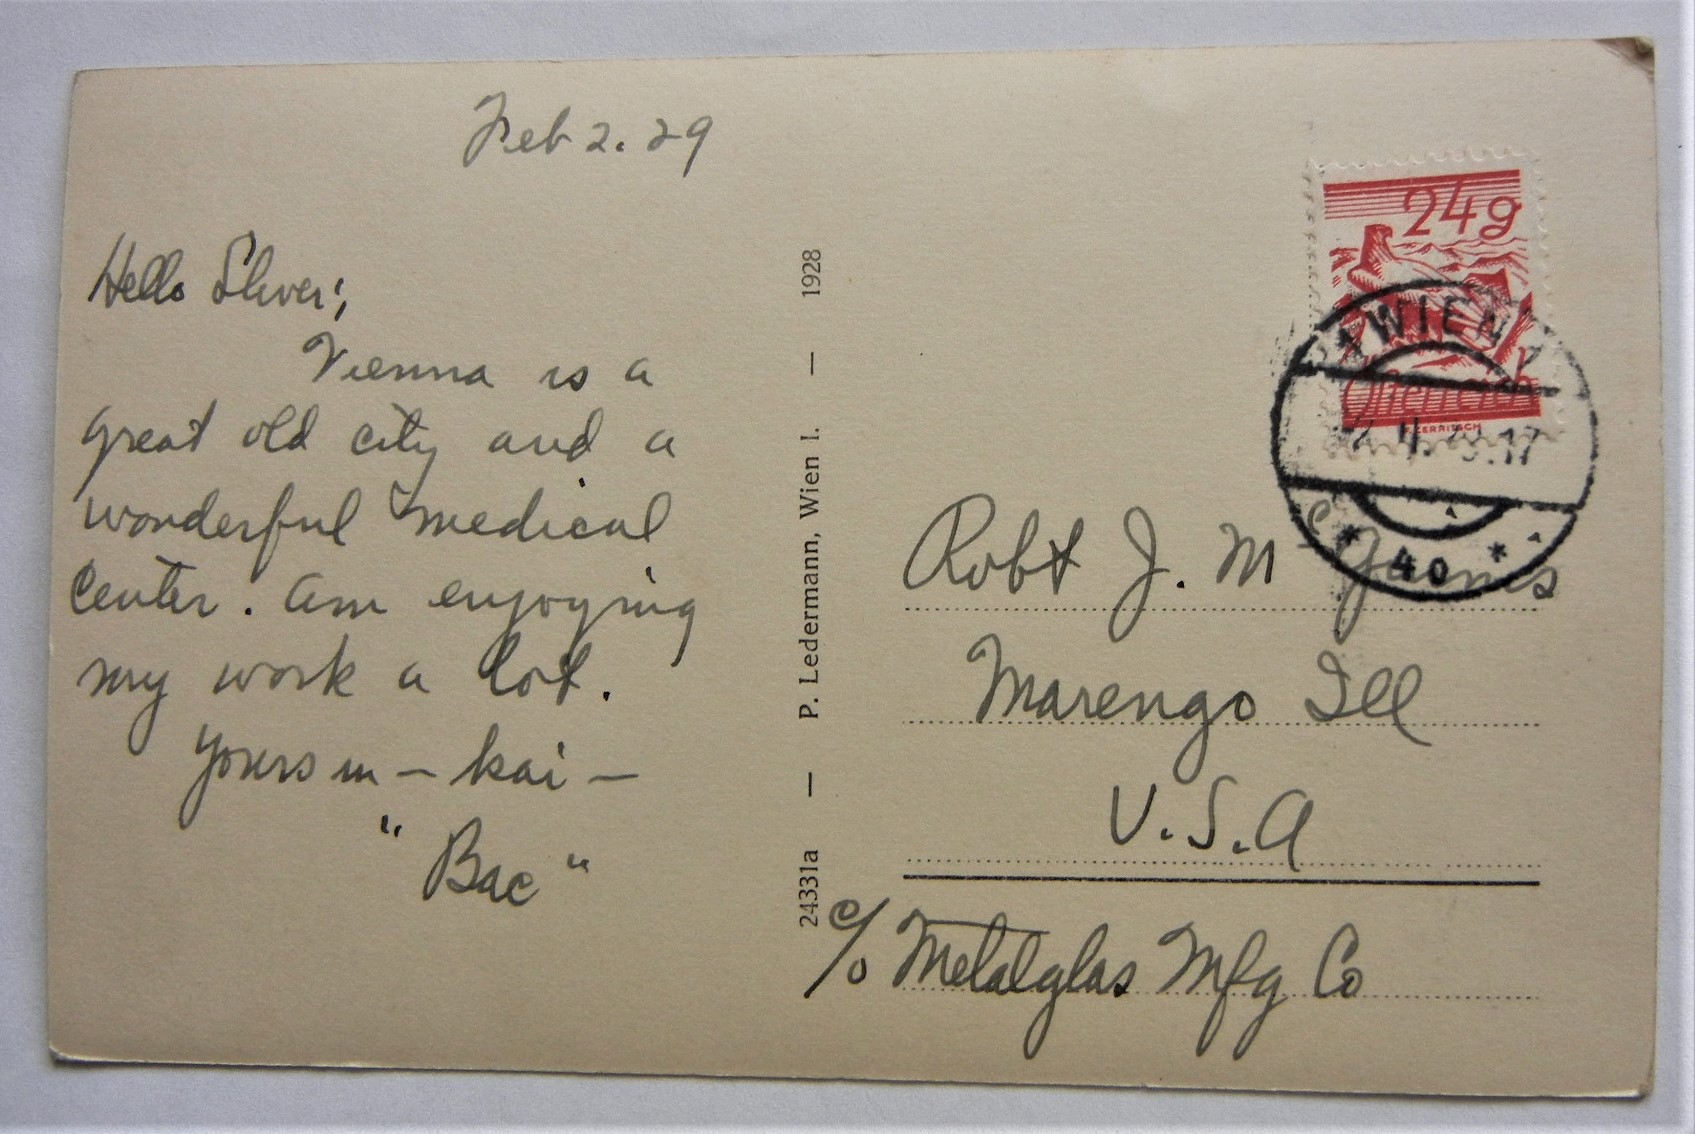 Feb 2. 29
Hello Sliver;
Vienna is a
great old city and a
wonderful medical
Center. Am enjoying
my work a lot.
Yours in – kai –
"Bac"
24331a — P. Ledermann, Wien I. — 1928
24g
WIEN
Österreich
17
* 40 *
Robt J. Mc
Marengo Ill
U.S.A
c/o Metalglas Mfg Co